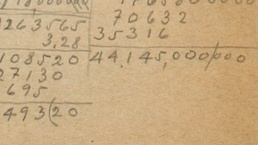 263565
3,28
108520
27130
695
493(20
70632
35316
44,145,000/000